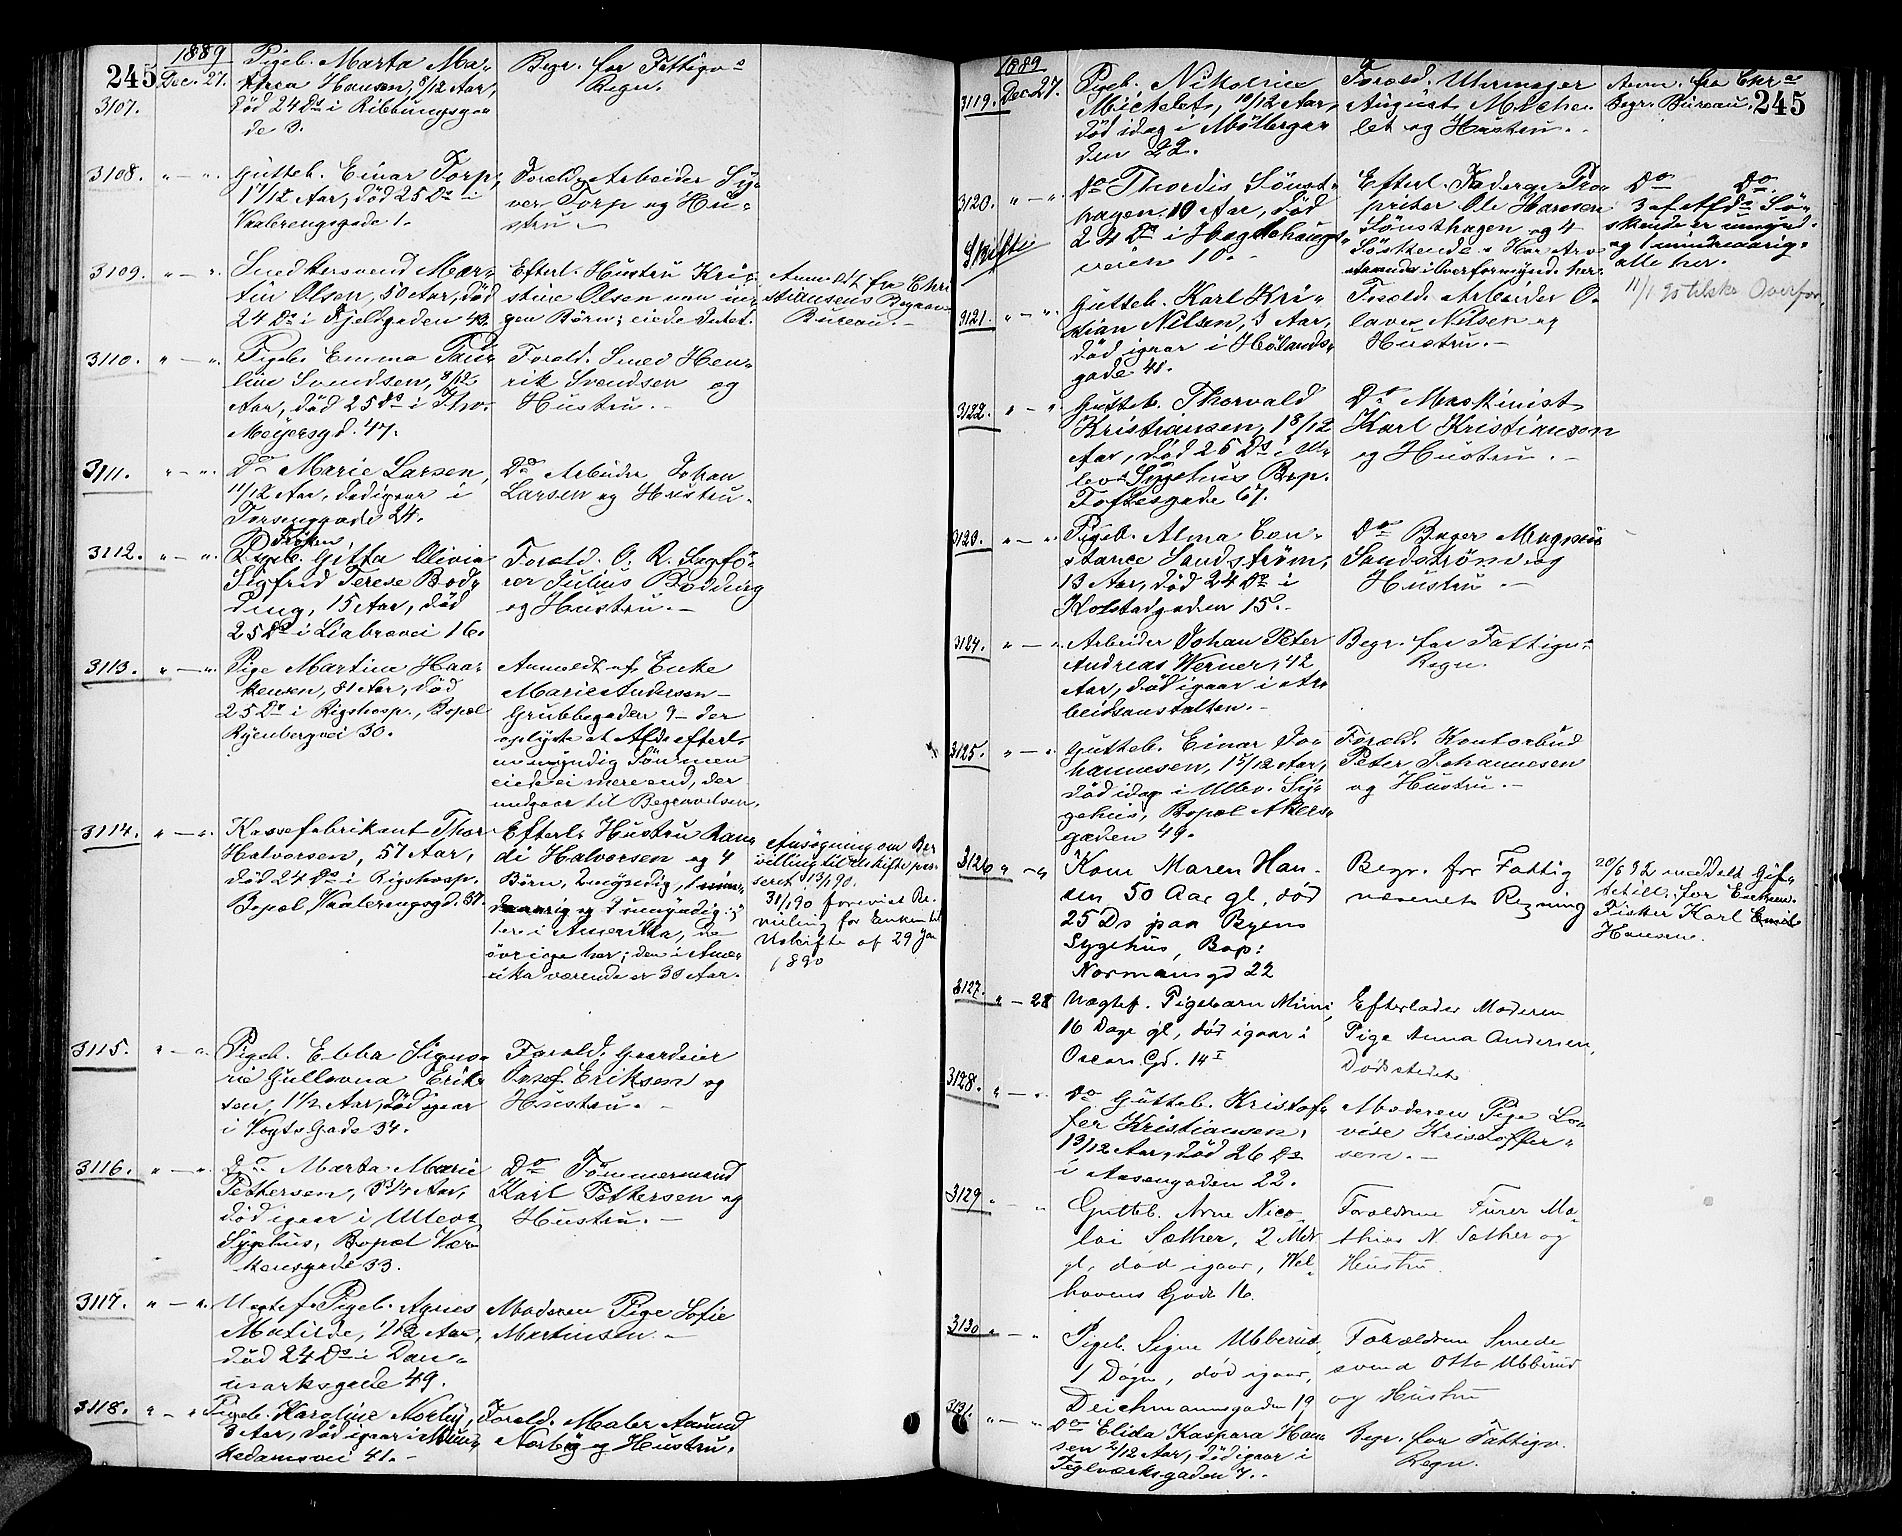 245
1889
3107.
Dec. 27.
Pigeb. Marta Ma-
thea Hansen, 8/12 Aar,
död 24 Ds i Ribstungsga-
de 3.
Begr. for Fattigv.
Regn.
3108.
" — "
Gutteb. Einar Torp,
1 7/12 Aar, död 25 Ds i
Vaalerengsgade 1.
Foræld. Arbeider Sy-
ver Torp og Hu-
stru.
3109.
" — "
Smedkersvend Mar-
tin Olsen, 50 Aar, död
24 Ds i Fjeldgaden 43.
Efterl. Hustru Kri-
stine Olsen men in-
gen Börn; eiede Intet.
Anmeldt fra Chri-
stiansens Begrav.
Bureau.
3110.
" — "
Pigeb. Emma Pau-
line Svendsen, 8/12
Aar, död 25 Ds i Thv.
Meyersgd. 47.
Foræld. Smed Hen-
rik Svendsen og
Hustru.
3111.
" — "
Do Marie Larsen,
11/12 Aar, död igaar i
Torsensgade 24.
Do Arbeider Johan
Larsen og Hustru.
3112.
" — "
Fröken
Gitta Olivia
Sigfrid Terese Bod-
ding, 15 Aar, död
25 Ds i Liabrovei 16.
Foræld. O. R. Sagfö-
rer Julius Bodding
og Hustru.
3113.
" — "
Pige Martine Haa-
kensen, 81 Aar, död
25 Ds i Rigshosp., Bopæl
Ryenbergvei 30.
Anmeldt af Enke
Marie Andersen
Grubbegaden 9 — der
oplyste at Afdöde efterl.
en myndig Sön men
eiede ei mere end, der
medgaar til Begravelsen.
3114.
" — "
Kassefabrikant Thor
Halvorsen, 57 Aar,
död 24 Ds i Rigshosp.
Bopæl, Vaalerengsgd. 37.
Efterl. Hustru Ran-
di Halvorsen og 4
Börn, 2 myndig, 1 min-
dreaarig og 1 umyndig;
i Amerika, de
övrige her; den i Ame-
rika værende er 30 Aar.
Ansögning om Be-
villing til Uskifte pas-
seret 13/1 90.
31/1 90 forevist Be-
villing for Enken til
Uskifte af 29 Jan
1890
3115.
" — "
Pigeb. Ebba Signo-
ra Gullovna Erik-
sen, 1 1/2 Aar, död igaar
i Vogts Gade 34.
Foræld. Gaardeier
Josef Eriksen og
Hustru.
3116.
" — "
Do Marta Marie
Pettersen, 3 3/4 Aar,
död igaar i Ullevs
Sygehus, Bopæl Vær-
kensgade 33.
Do Tömmermand
Karl Pettersen og
Hustru.
3117.
" — "
Uegtef. Pigeb. Agnes
Matilde, 1/12 Aar,
död 24 Ds i Dan-
marksgade 49.
Moderen Pige Sofie
Martinsen.
3118.
" — "
Pigeb. Karoline Norby,
3 Aar, död igaar i Mun-
kedamsvei 41.
Foræld. Maler Amund
Norby og Hustru.
245
1889
3119.
Dec 27.
Pigeb. Nikoline
Michelet, 10/12 Aar,
död idag i Möllerga-
den 22.
Foræld. Uhrmager
August Miche-
let og Hustru.
Anm. fra Chr.
Begr. Bureau.
3120.
" — "
Skifte
Do Thordis Sönst-
hagen, 10 Aar, död
24 Ds i Hægdehaugs-
veien 10.
Efterl. Faderen Pro-
prietær Ole Hansen
Sönsthagen og 4
Söskende. Har Arv
i Overformynd. her.
Do Do.
3 af Afdödes Sö-
skende er umynd.
og 1 mindreaarig,
alle her.
11/1 90 tilskr Overfor.
3121.
" — "
Gutteb. Karl Kri-
stian Nilsen, 3 Aar,
död igaar i Hölands-
gade 41.
Foræld. Arbeider O-
laves Nilsen og
Hustru.
3122.
" — "
Gutteb. Thorvald
Kristiansen, 1 8/12
Aar, död 25 Ds i Ul-
levs Sygehus Bop.
Toftesgade 67.
Do Maskinist
Karl Kristiansen
og Hustru.
3123.
" — "
Pigeb. Alma Con-
stance Sandström,
13 Aar, död 24 Ds i
Holstadgaden 15.
Do Bager Magnus
Sandström og
Hustru.
3124.
" — "
Arbeider Johan Peter
Andreas Werner, 42
Aar, död igaar i Ar-
beidsanstalten.
Begr. for Fattigv.
Regn.
3125.
" — "
Gutteb. Einar Jo-
hannesen, 1 5/12 Aar,
död idag i Ullev. Sy-
gehus, Bopæl Akers-
gaden 49.
Foræld. Kontorbud
Peter Johannesen
og Hustru.
3126
" — "
Kone Maren Han-
sen 50 Aar gl, död
25 Ds paa Byens
Sygehus, Bop:
Normansgd 22
Begr. for Fattig
væsenets Regning
20/6 92 meddelt Gif-
tetill. for Enkem.
Fisker Karl Emil
Hansen.
3127.
" — 28
Uægtef. Pigebarn Mimi,
16 Dage gl, död igaar i
Oscars Gd. 14 I
Efterlader Moderen
Pige Anna Andersen,
Dödsstedet
3128.
" — "
Do Gutteb. Kristof-
fer Kristiansen,
1 3/12 Aar, död 26 Ds
i Aasengaden 22.
Moderen Pige Lo-
vise Kristoffer-
sen.
3129
" "
Gutteb. Arne Nico-
lai Sæther, 2 Mdr
gl, död igaar, Wel-
havens Gade 16.
Forældrene Furer Ma-
thias N Sæther og
Hustru.
3130
" — "
Pigeb. Signe Ubberud
1 Dögn, död igaar,
Deichmannsgaden 19
Forældrene Smede-
svend Otto Ubberud
og Hustru
3131.
" — "
Do Elida Kaspara Han-
sen 2/12 Aar, död igaar i
Teglværksgaden 7.
Begr. for Fattigv.
Regn.